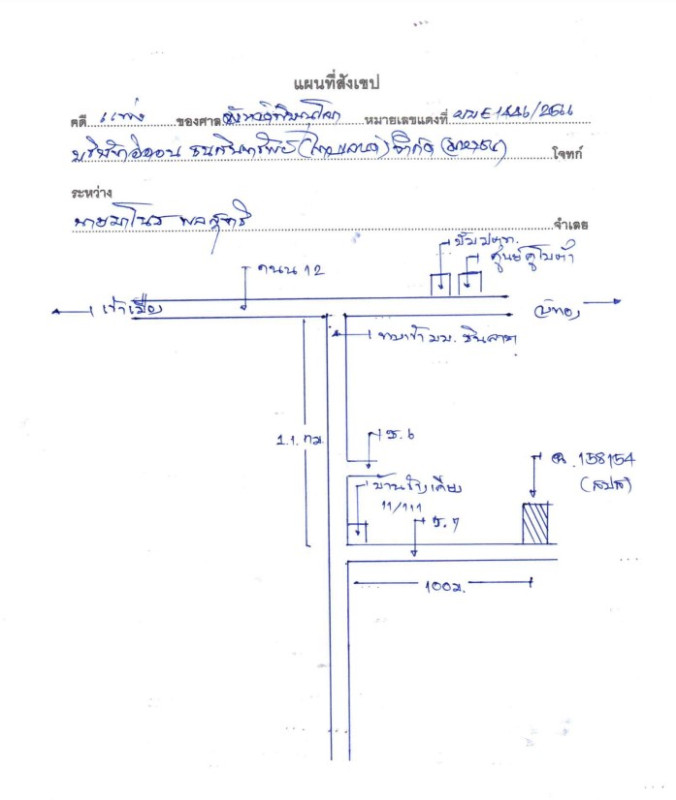 แผนที่สังเขป
คดี แพ่ง ของศาลจังหวัดพิษณุโลก หมายเลขแดงที่ ผบE1446/2566
บริษัทอิออน ธนสินทรัพย์ (ไทยแลนด์) จำกัด (มหาชน) โจทก์
ระหว่าง
นายมาโนช พลสุทธิ จำเลย
ปั๊ม ปตท.
ศูนย์คูโบต้า
ถนน 12
เข้าเมือง
วังทอง
ทางเข้า มบ.
1.1. กม.
ซ.6
ฉ.158154
(สปส)
บ้านข้างเคียง
11/111
ซ.7
100ม.